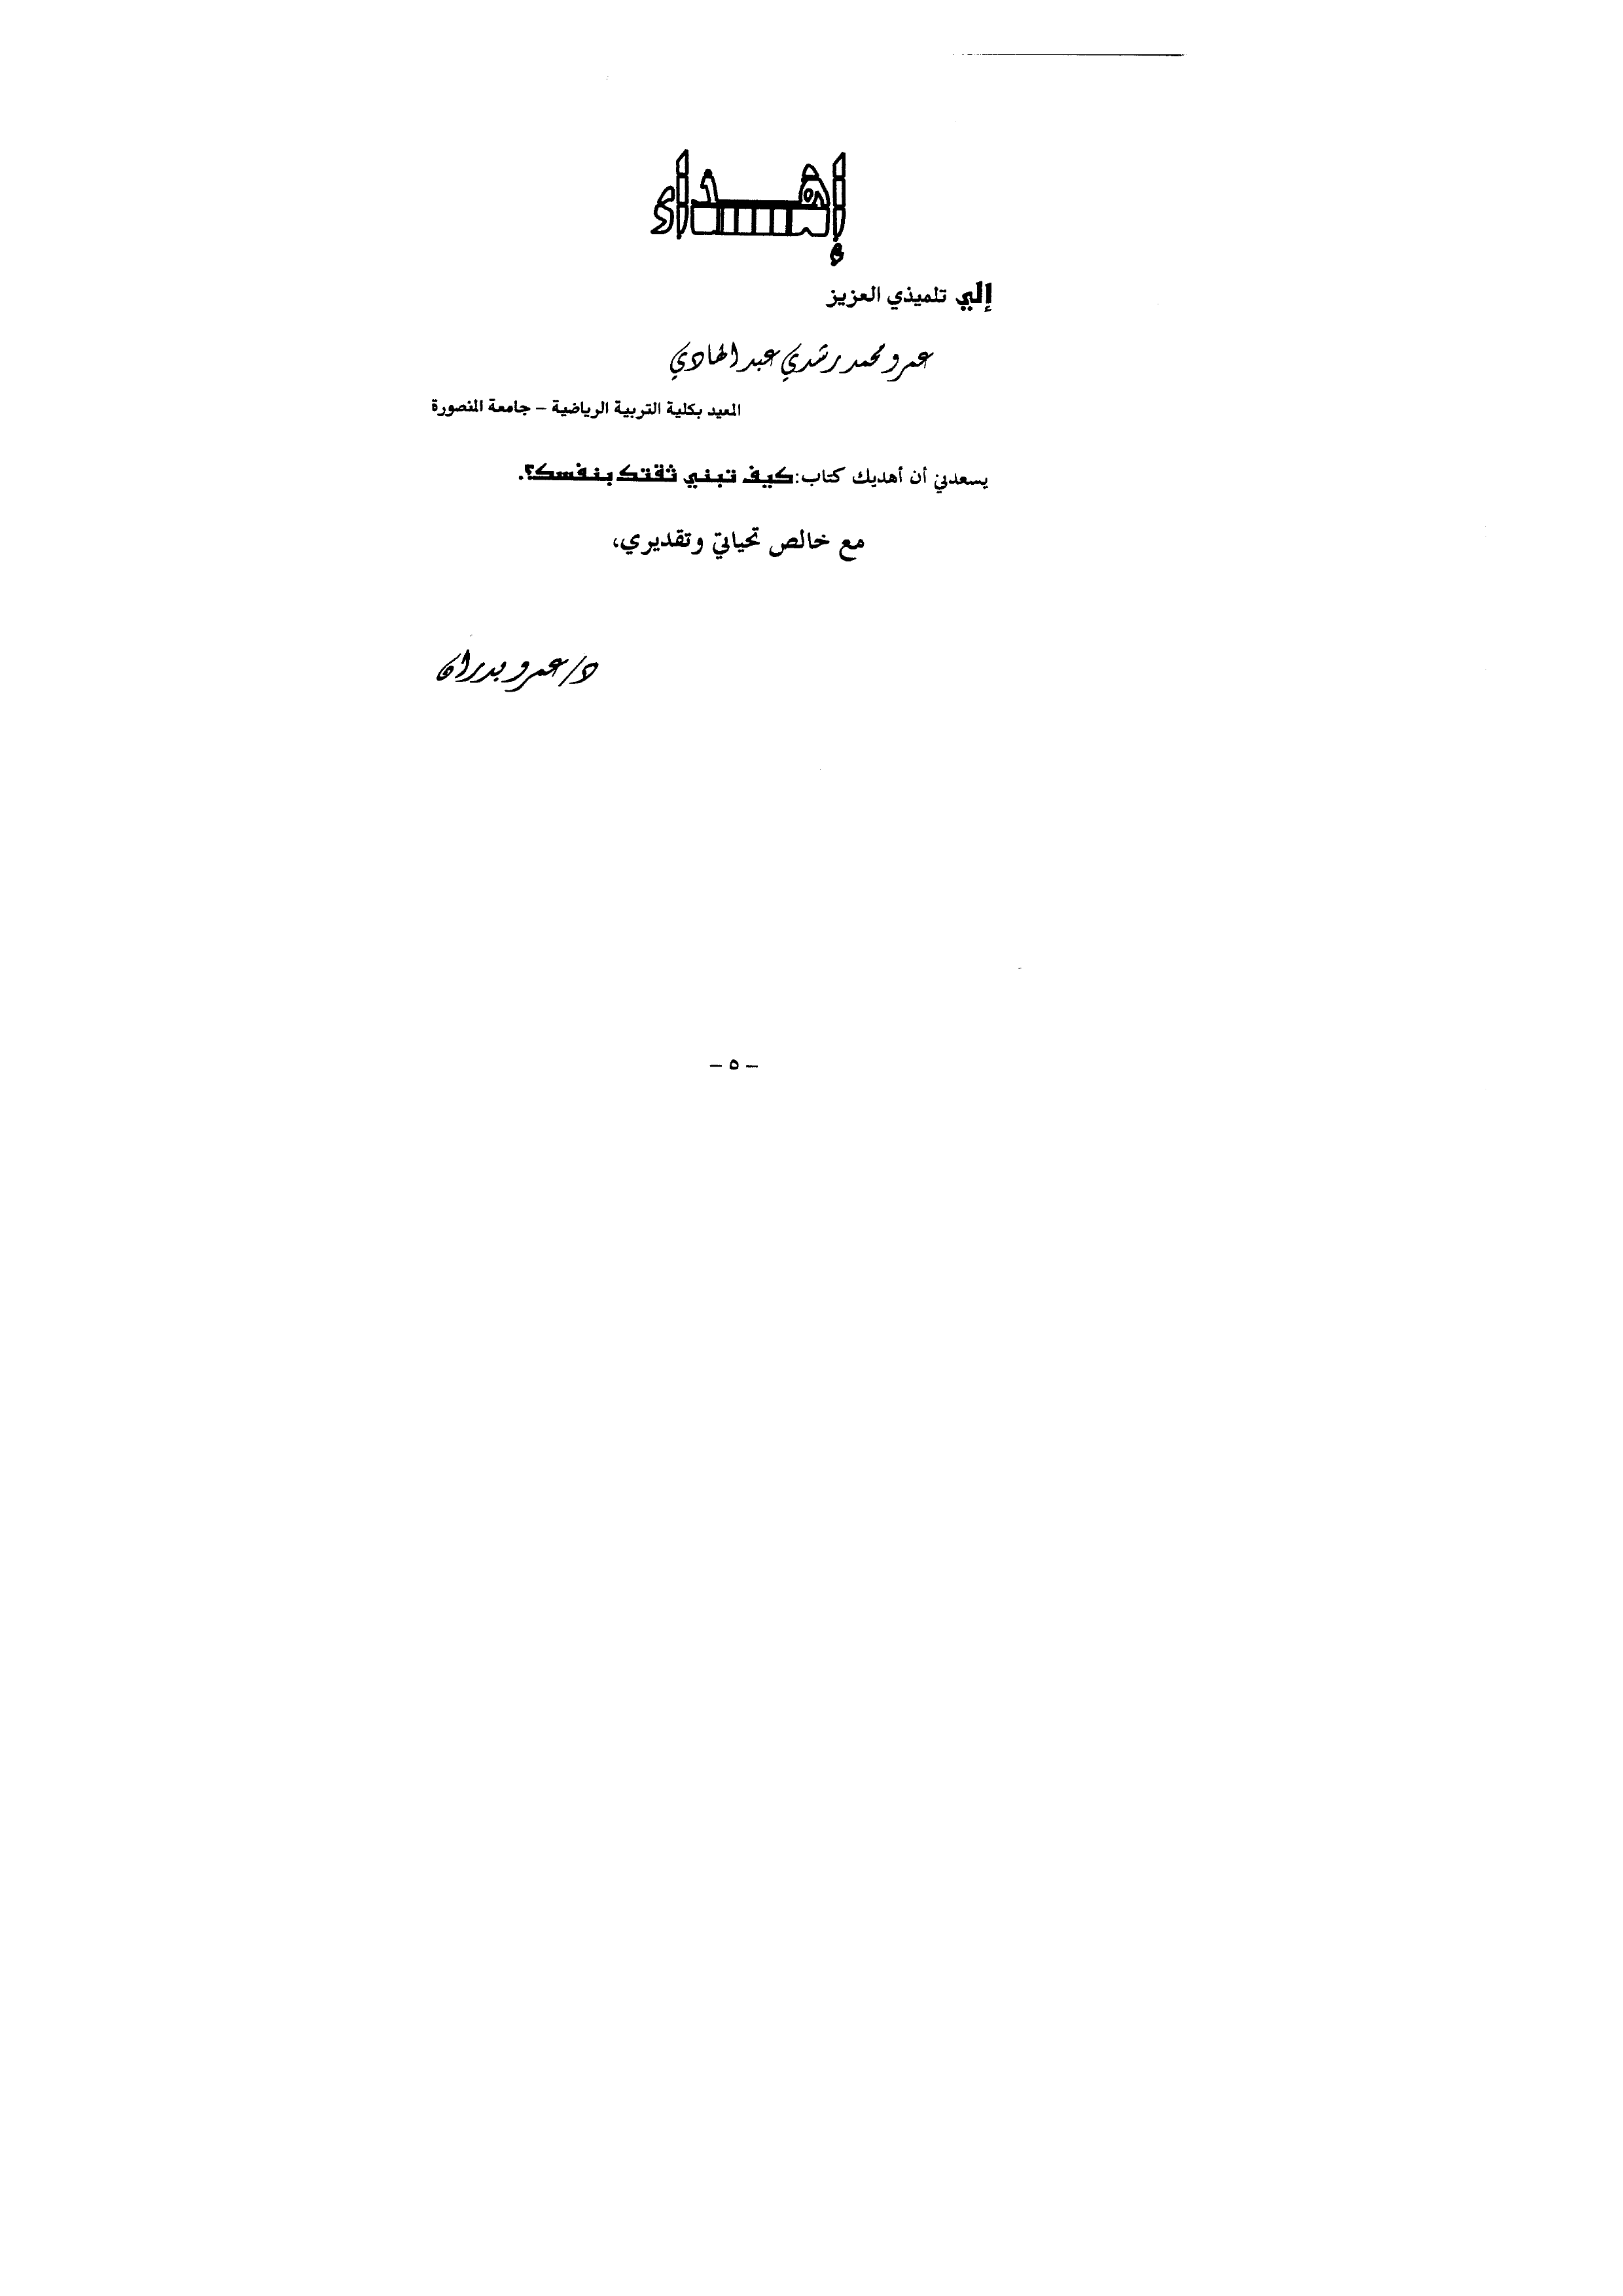 إهـــداء
إلي تلميذي العزيز
عمرو محمد رشدي عبد الهادي
المعيد بكلية التربية الرياضية – جامعة المنصورة
يسعدني أن أهديك كتاب: كيف تبني ثقتك بنفسك؟.
مع خالص تحياتي وتقديري،
د/عمرو بدران
– ٥ –